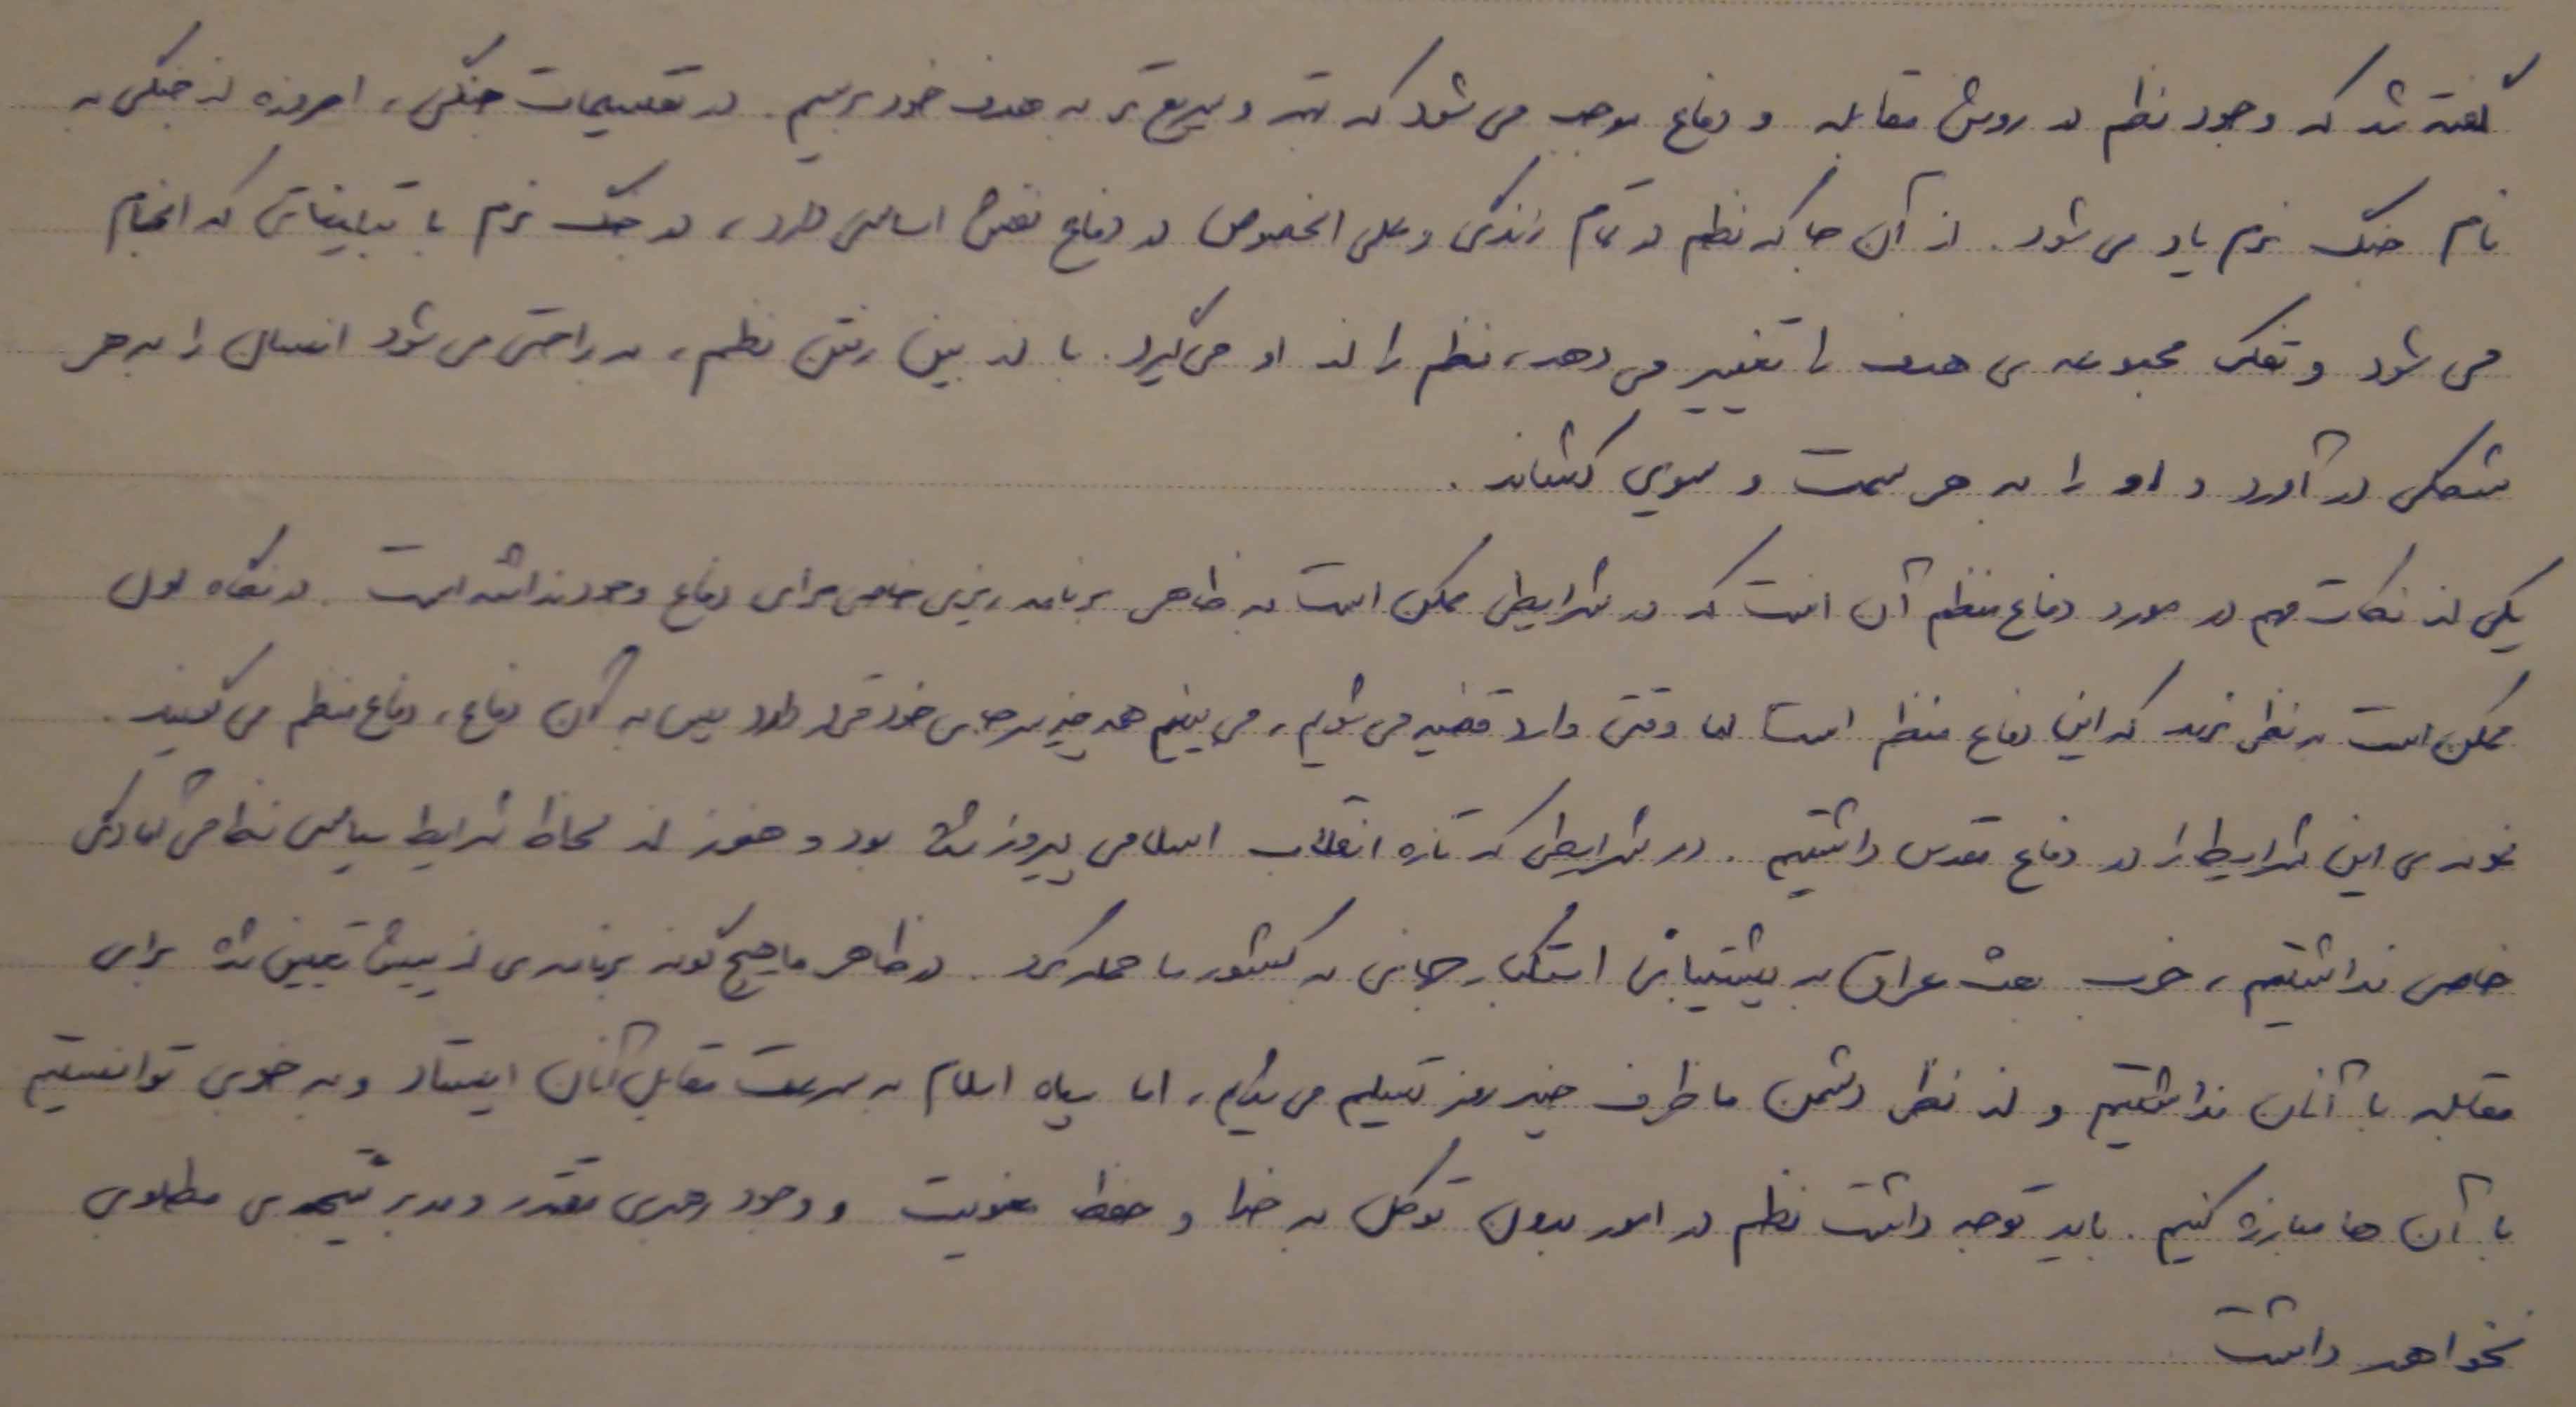 گفته شد که وجود نظم در روش مقابله و دفاع موجب می شود که بهتر و سریع تر به هدف خود برسیم. در تقسیمات جنگی، امروزه از جنگی به
نام جنگ نرم یاد می شود. از آن جا که نظم در تمام زندگی و علی الخصوص در دفاع نقش اساسی دارد، در جنگ نرم با تبلیغاتی که انجام
می شود و تفکر مجموعه ی هدف را تغییر می دهد، نظم را از او می گیرد. با از بین رفتن نظم، به راحتی می شود انسان را به هر
شکلی در آورد و او را به هر سمت و سویی کشاند.
یکی از نکات مهم در مورد دفاع منظم آن است که در شرایطی ممکن است به ظاهر برنامه ریزی خاصی برای دفاع وجود نداشته است. در نگاه اول
ممکن است به نظر نرسد که این دفاع منظم است اما وقتی وارد قضیه می شویم، می بینیم همه چیز سر جای خود قرار دارد پس به آن دفاع، دفاع منظم می گویند.
نمونه ی این شرایط را در دفاع مقدس داشتیم. در شرایطی که تازه انقلاب اسلامی پیروز شده بود و هنوز از لحاظ شرایط سیاسی نظامی آمادگی
خاصی نداشتیم، حزب بعث عراق به پشتیبانی استکبار جهانی به کشور ما حمله کرد. در ظاهر ما هیچ گونه برنامه ی از پیش تعیین شده برای
مقابله با آنان نداشتیم و از نظر دشمن ما ظرف چند روز تسلیم می شدیم، اما سپاه اسلام به سرعت مقابل آنان ایستاد و به خوبی توانستیم
با آن ها مبارزه کنیم. باید توجه داشت نظم در امور بدون توکل به خدا و حفظ معنویت و وجود رهبری مقتدر و مدبر نتیجه ی مطلوبی
نخواهد داشت